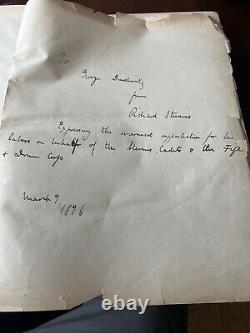 To
George
from
Richard Stevens
Expressing the warmest appreciation for his
labors on behalf of the Stevens Cadets & the Fife
& Drum Corps
March 9
1896